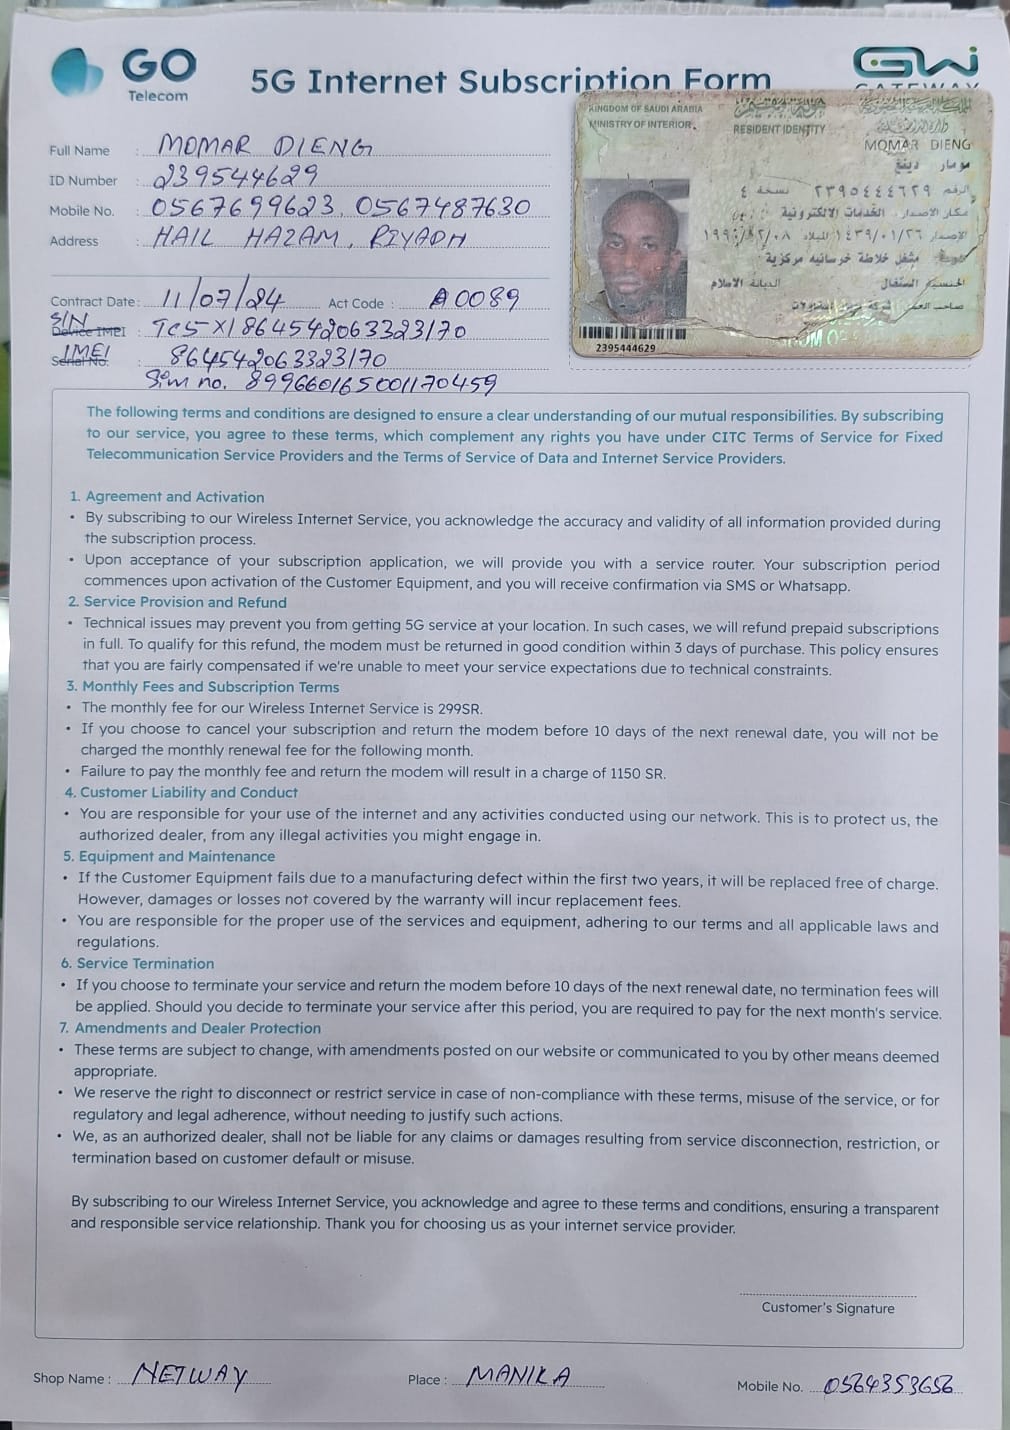 GO
Telecom
5G Internet Subscription Form
GWi
GATEWAY
Full Name : MOMAR DIENG
ID Number : 239544629
Mobile No. : 0567699623, 0567487630
Address : HAIL HAZAM, RIYADH
Contract Date : 11/07/24 Act Code : A0089
S/N
Device IMEI : TC5X1864542063323170
IMEI
Serial No. : 864542063323170
Sim no. 899660165001170459
KINGDOM OF SAUDI ARABIA
MINISTRY OF INTERIOR
RESIDENT IDENTITY
MOMAR DIENG
مومار دينغ
الرقم ٢٣٩٥٤٤٤٦٢٩ نسخة ٤
مكان الإصدار الخدمات الالكترونية
الإصدار ١٤٣٩/٠١/٢٦ الميلاد
مشغل خلاطة خرسانيه مركزية
الجنسية السنغال الديانة الاسلام
صاحب العمل
2395444629
The following terms and conditions are designed to ensure a clear understanding of our mutual responsibilities. By subscribing
to our service, you agree to these terms, which complement any rights you have under CITC Terms of Service for Fixed
Telecommunication Service Providers and the Terms of Service of Data and Internet Service Providers.
1. Agreement and Activation
• By subscribing to our Wireless Internet Service, you acknowledge the accuracy and validity of all information provided during
the subscription process.
• Upon acceptance of your subscription application, we will provide you with a service router. Your subscription period
commences upon activation of the Customer Equipment, and you will receive confirmation via SMS or Whatsapp.
2. Service Provision and Refund
• Technical issues may prevent you from getting 5G service at your location. In such cases, we will refund prepaid subscriptions
in full. To qualify for this refund, the modem must be returned in good condition within 3 days of purchase. This policy ensures
that you are fairly compensated if we're unable to meet your service expectations due to technical constraints.
3. Monthly Fees and Subscription Terms
• The monthly fee for our Wireless Internet Service is 299SR.
• If you choose to cancel your subscription and return the modem before 10 days of the next renewal date, you will not be
charged the monthly renewal fee for the following month.
• Failure to pay the monthly fee and return the modem will result in a charge of 1150 SR.
4. Customer Liability and Conduct
• You are responsible for your use of the internet and any activities conducted using our network. This is to protect us, the
authorized dealer, from any illegal activities you might engage in.
5. Equipment and Maintenance
• If the Customer Equipment fails due to a manufacturing defect within the first two years, it will be replaced free of charge.
However, damages or losses not covered by the warranty will incur replacement fees.
• You are responsible for the proper use of the services and equipment, adhering to our terms and all applicable laws and
regulations.
6. Service Termination
• If you choose to terminate your service and return the modem before 10 days of the next renewal date, no termination fees will
be applied. Should you decide to terminate your service after this period, you are required to pay for the next month's service.
7. Amendments and Dealer Protection
• These terms are subject to change, with amendments posted on our website or communicated to you by other means deemed
appropriate.
• We reserve the right to disconnect or restrict service in case of non-compliance with these terms, misuse of the service, or for
regulatory and legal adherence, without needing to justify such actions.
• We, as an authorized dealer, shall not be liable for any claims or damages resulting from service disconnection, restriction, or
termination based on customer default or misuse.
By subscribing to our Wireless Internet Service, you acknowledge and agree to these terms and conditions, ensuring a transparent
and responsible service relationship. Thank you for choosing us as your internet service provider.
Customer's Signature
Shop Name : NETWAY Place : MANIKA Mobile No. 0564353656